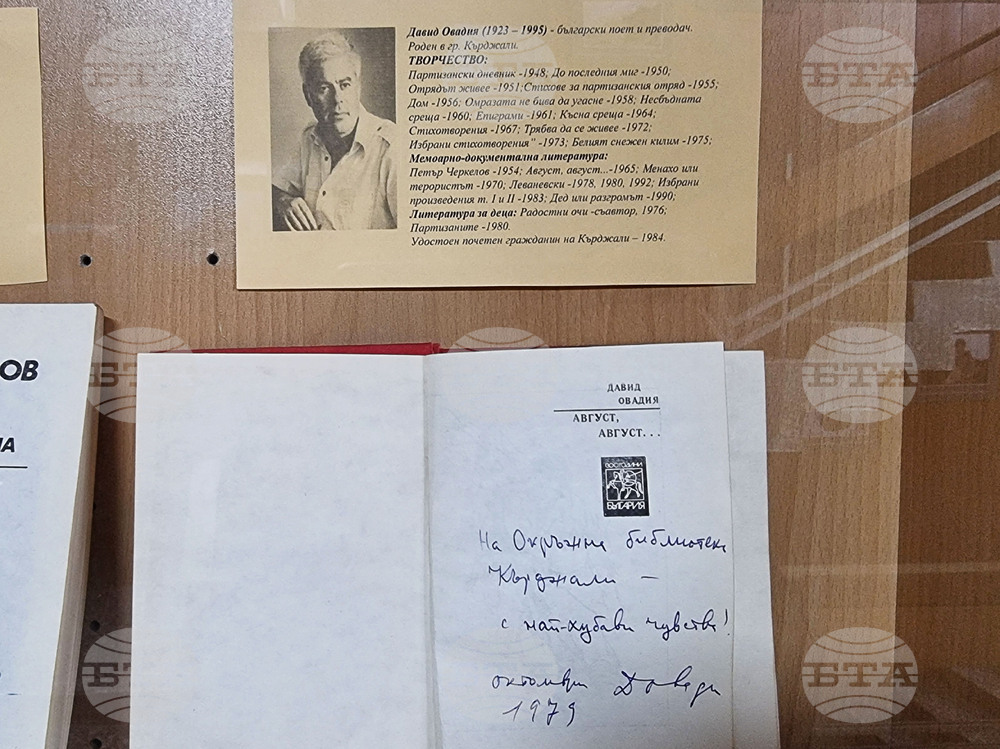 Давид Овадия (1923 – 1995) - български поет и преводач.
Роден в гр. Кърджали.
ТВОРЧЕСТВО:
Партизански дневник -1948; До последния миг -1950;
Отрядът живее -1951; Стихове за партизанския отряд -1955;
Дом -1956; Омразата не бива да угасне -1958; Несбъдната
среща -1960; Епиграми -1961; Късна среща -1964;
Стихотворения -1967; Трябва да се живее -1972;
Избрани стихотворения" -1973; Белият снежен килим -1975;
Мемоарно-документална литература:
Петър Черкелов -1954; Август, август...-1965; Менахо или
терористът -1970; Леваневски -1978, 1980, 1992; Избрани
произведения т. I и II -1983; Дед или разгромът -1990;
Литература за деца: Радостни очи -съавтор, 1976;
Партизаните -1980.
Удостоен почетен гражданин на Кърджали – 1984.
ОВ
НА
ДАВИД
ОВАДИЯ
АВГУСТ,
АВГУСТ...
1300 ГОДИНИ
БЪЛГАРИЯ
На Окръжна библиотека
Кърджали –
с най-хубави чувства!
октомври
1979
БТА
БТА
БТА
БТА
БТА
БТА
БТА
БТА
БТА